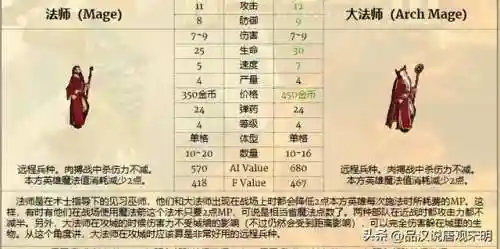 法师 (Mage)
11 攻击 12
大法师 (Arch Mage)
8 防御 9
7~9 伤害 7~9
25 生命 30
5 速度 7
4 产量 4
350金币 价格 450金币
24 弹药 24
4 等级 4
单格 体型 单格
10~20 数量 10~16
远程兵种。肉搏战中杀伤力不减。
本方英雄魔法值消耗减少2点。
570 AI Value 680
418 F Value 467
远程兵种。肉搏战中杀伤力不减。
本方英雄魔法值消耗减少2点。
法师是在术士指导下的见习巫师，他们和大法师出现在战场上时都会降低2点本方英雄每次施法时所耗费的MP。这
样，有时有他们在战场使用魔法箭这个法术只要2点MP，可说是相当省魔法点数了。两种部队在近战时都攻击力都不
减半。另外，大法师在攻城的时候伤害力不受城墙的影响（不过仍然会受到距离影响），可以完全伤害躲在城里的生
物。从这个角度讲，大法师在攻城时应该算是非常好用的远程兵种。
头条 @品汉说眉观宋明